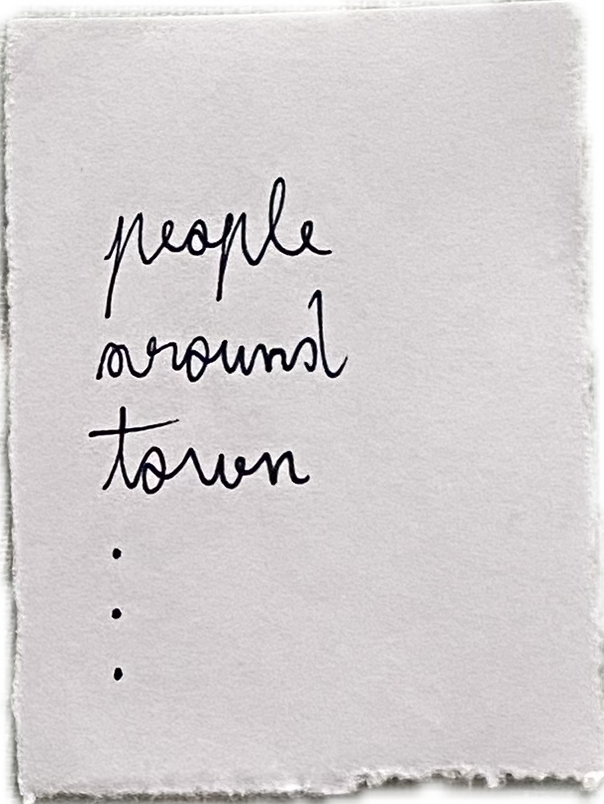 people
around
town
.
.
.